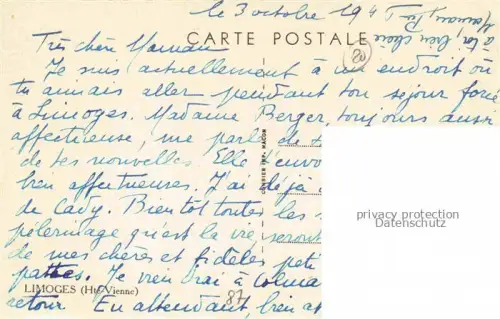 le 3 octobre 194
Très chère Maman
CARTE POSTALE
80
Je suis actuellement à un endroit où
tu aimais aller pendant ton séjour forcé
à Limoges. Madame Berger, toujours aussi
affectueuse, me parle de
de tes nouvelles. Elle t'envo
bien affectueuses. J'ai déjà
de Cady. Bientôt toutes les
pélerinage qu'est la vie seront
de mes chères et fidèles peti
pattes. Je reviendrai à Colma
LIMOGES (Hte Vienne)
retour. En attendant, bien af
87
à toi, bien chère
Maman,
COMBIER IMP. MACON
privacy protection
Datenschutz